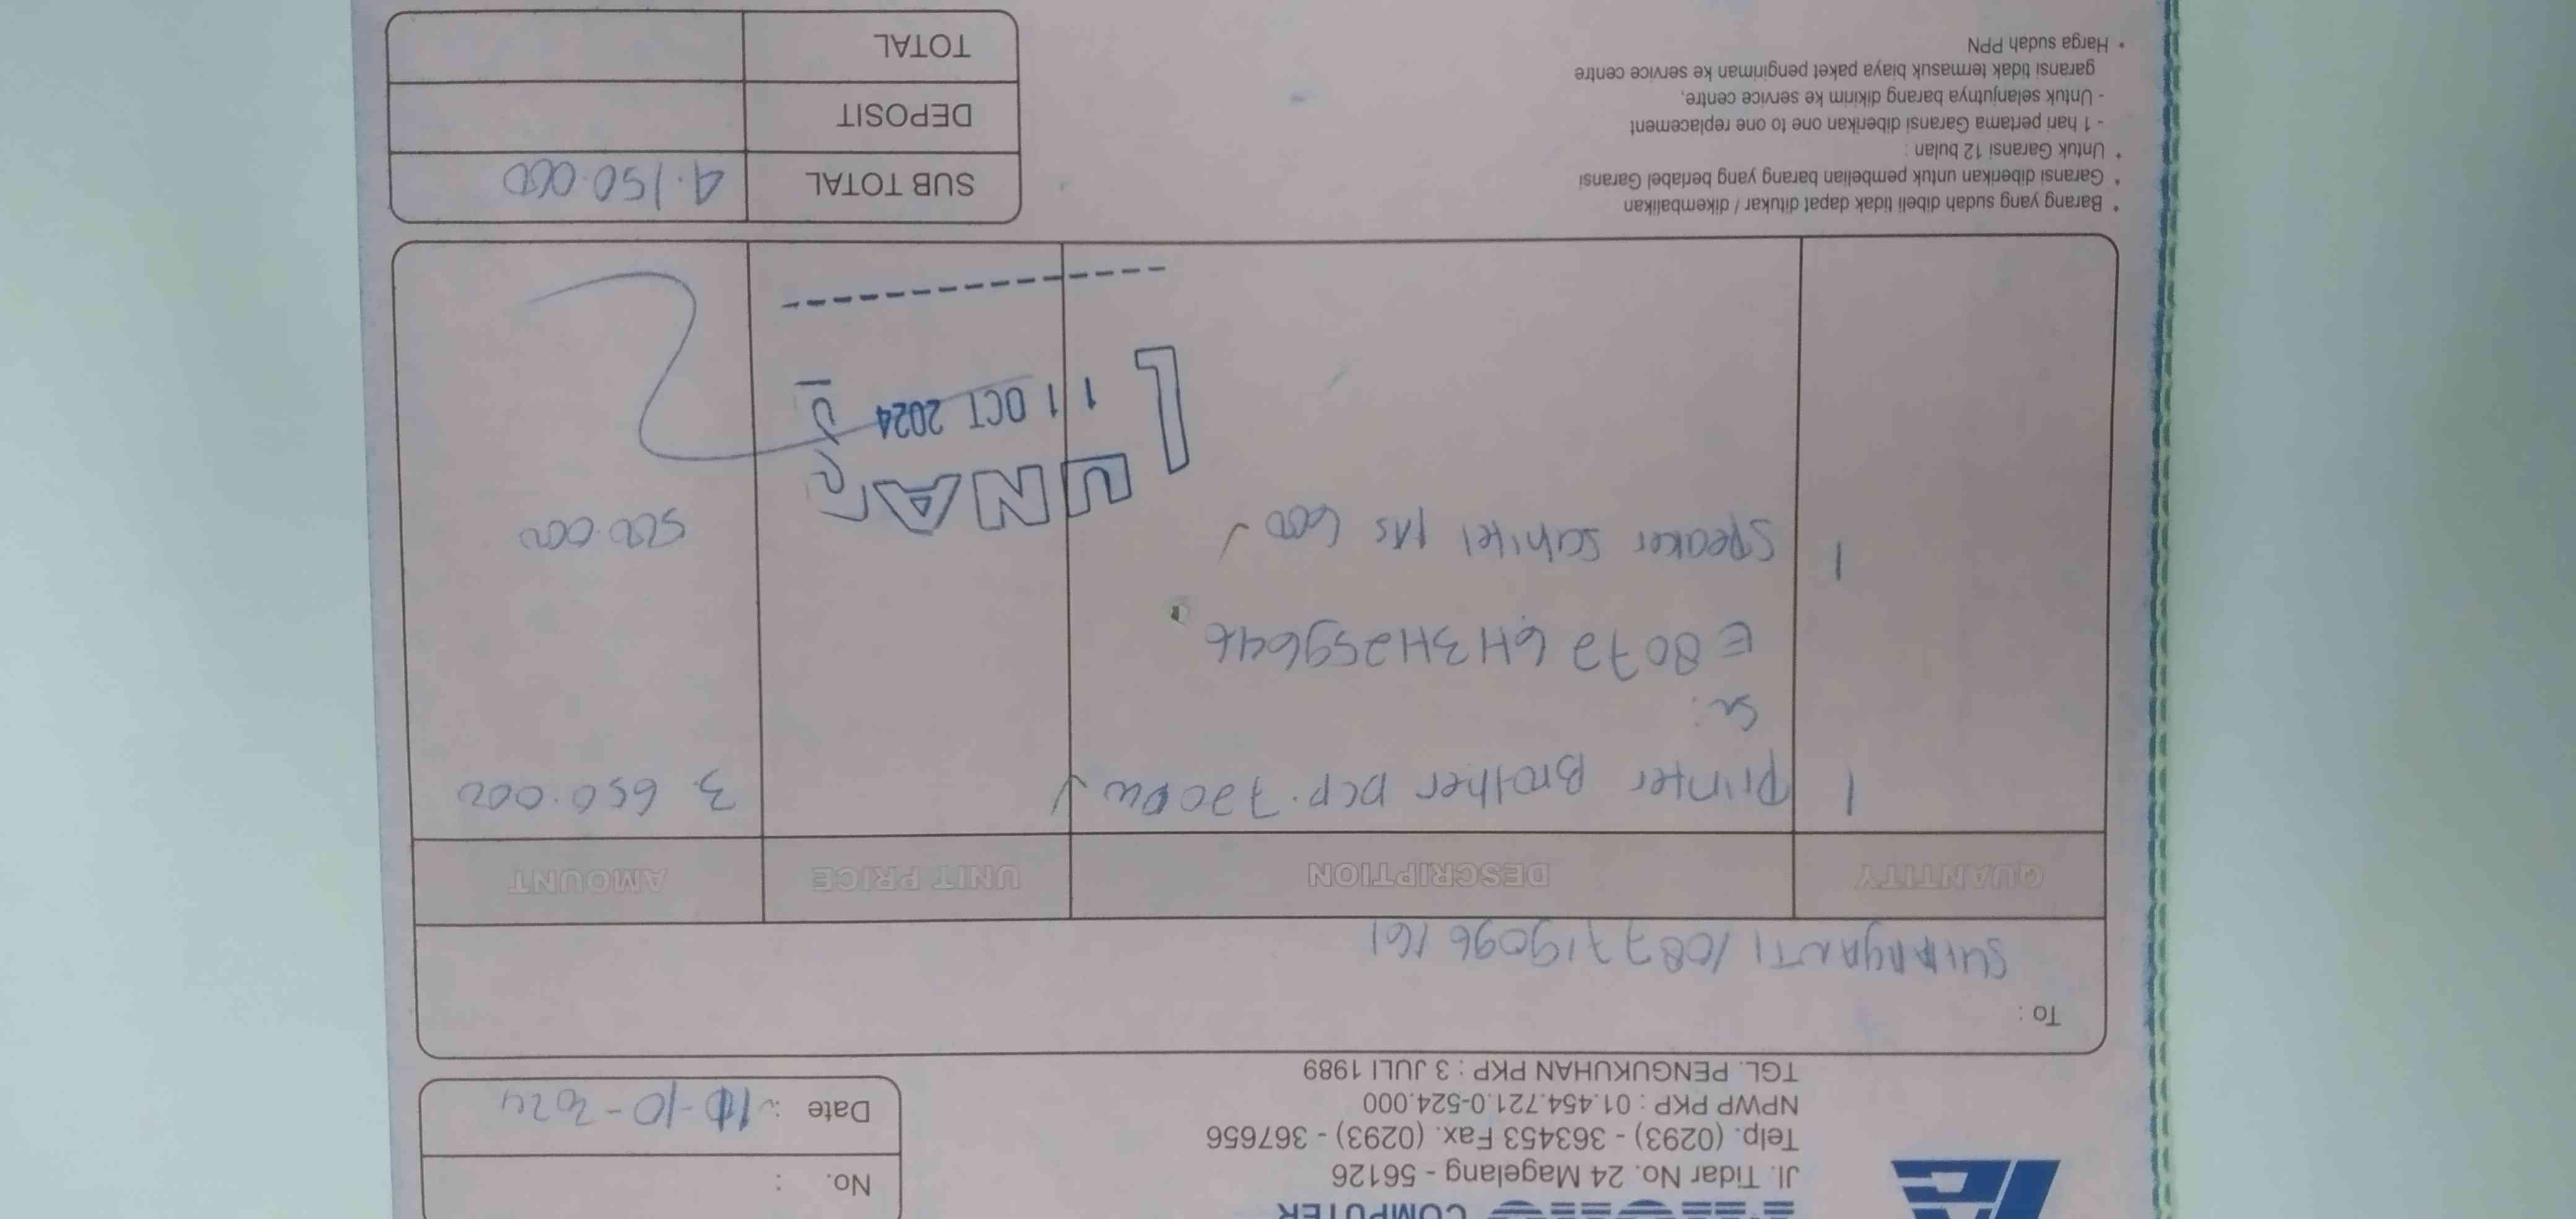 COMPUTER
Jl. Tidar No. 24 Magelang - 56126
Telp. (0293) - 363453 Fax. (0293) - 367656
NPWP PKP : 01.454.721.0-524.000
TGL. PENGUKUHAN PKP : 3 JULI 1989
No. :
Date : 11-10-2024
To :
/087719096161
QUANTITY DESCRIPTION UNIT PRICE AMOUNT
1 Printer Brother DCP. 3.650.000
Sn:
E 8072 6H3H259646
1 Speaker 500.000
LUNAS
11 OCT 2024
* Barang yang sudah dibeli tidak dapat ditukar / dikembalikan
* Garansi diberikan untuk pembelian barang yang berlabel Garansi
* Untuk Garansi 12 bulan :
- 1 hari pertama Garansi diberikan one to one replacement
- Untuk selanjutnya barang dikirim ke service centre,
garansi tidak termasuk biaya paket pengiriman ke service centre
* Harga sudah PPN
SUB TOTAL 4.150.000
DEPOSIT
TOTAL